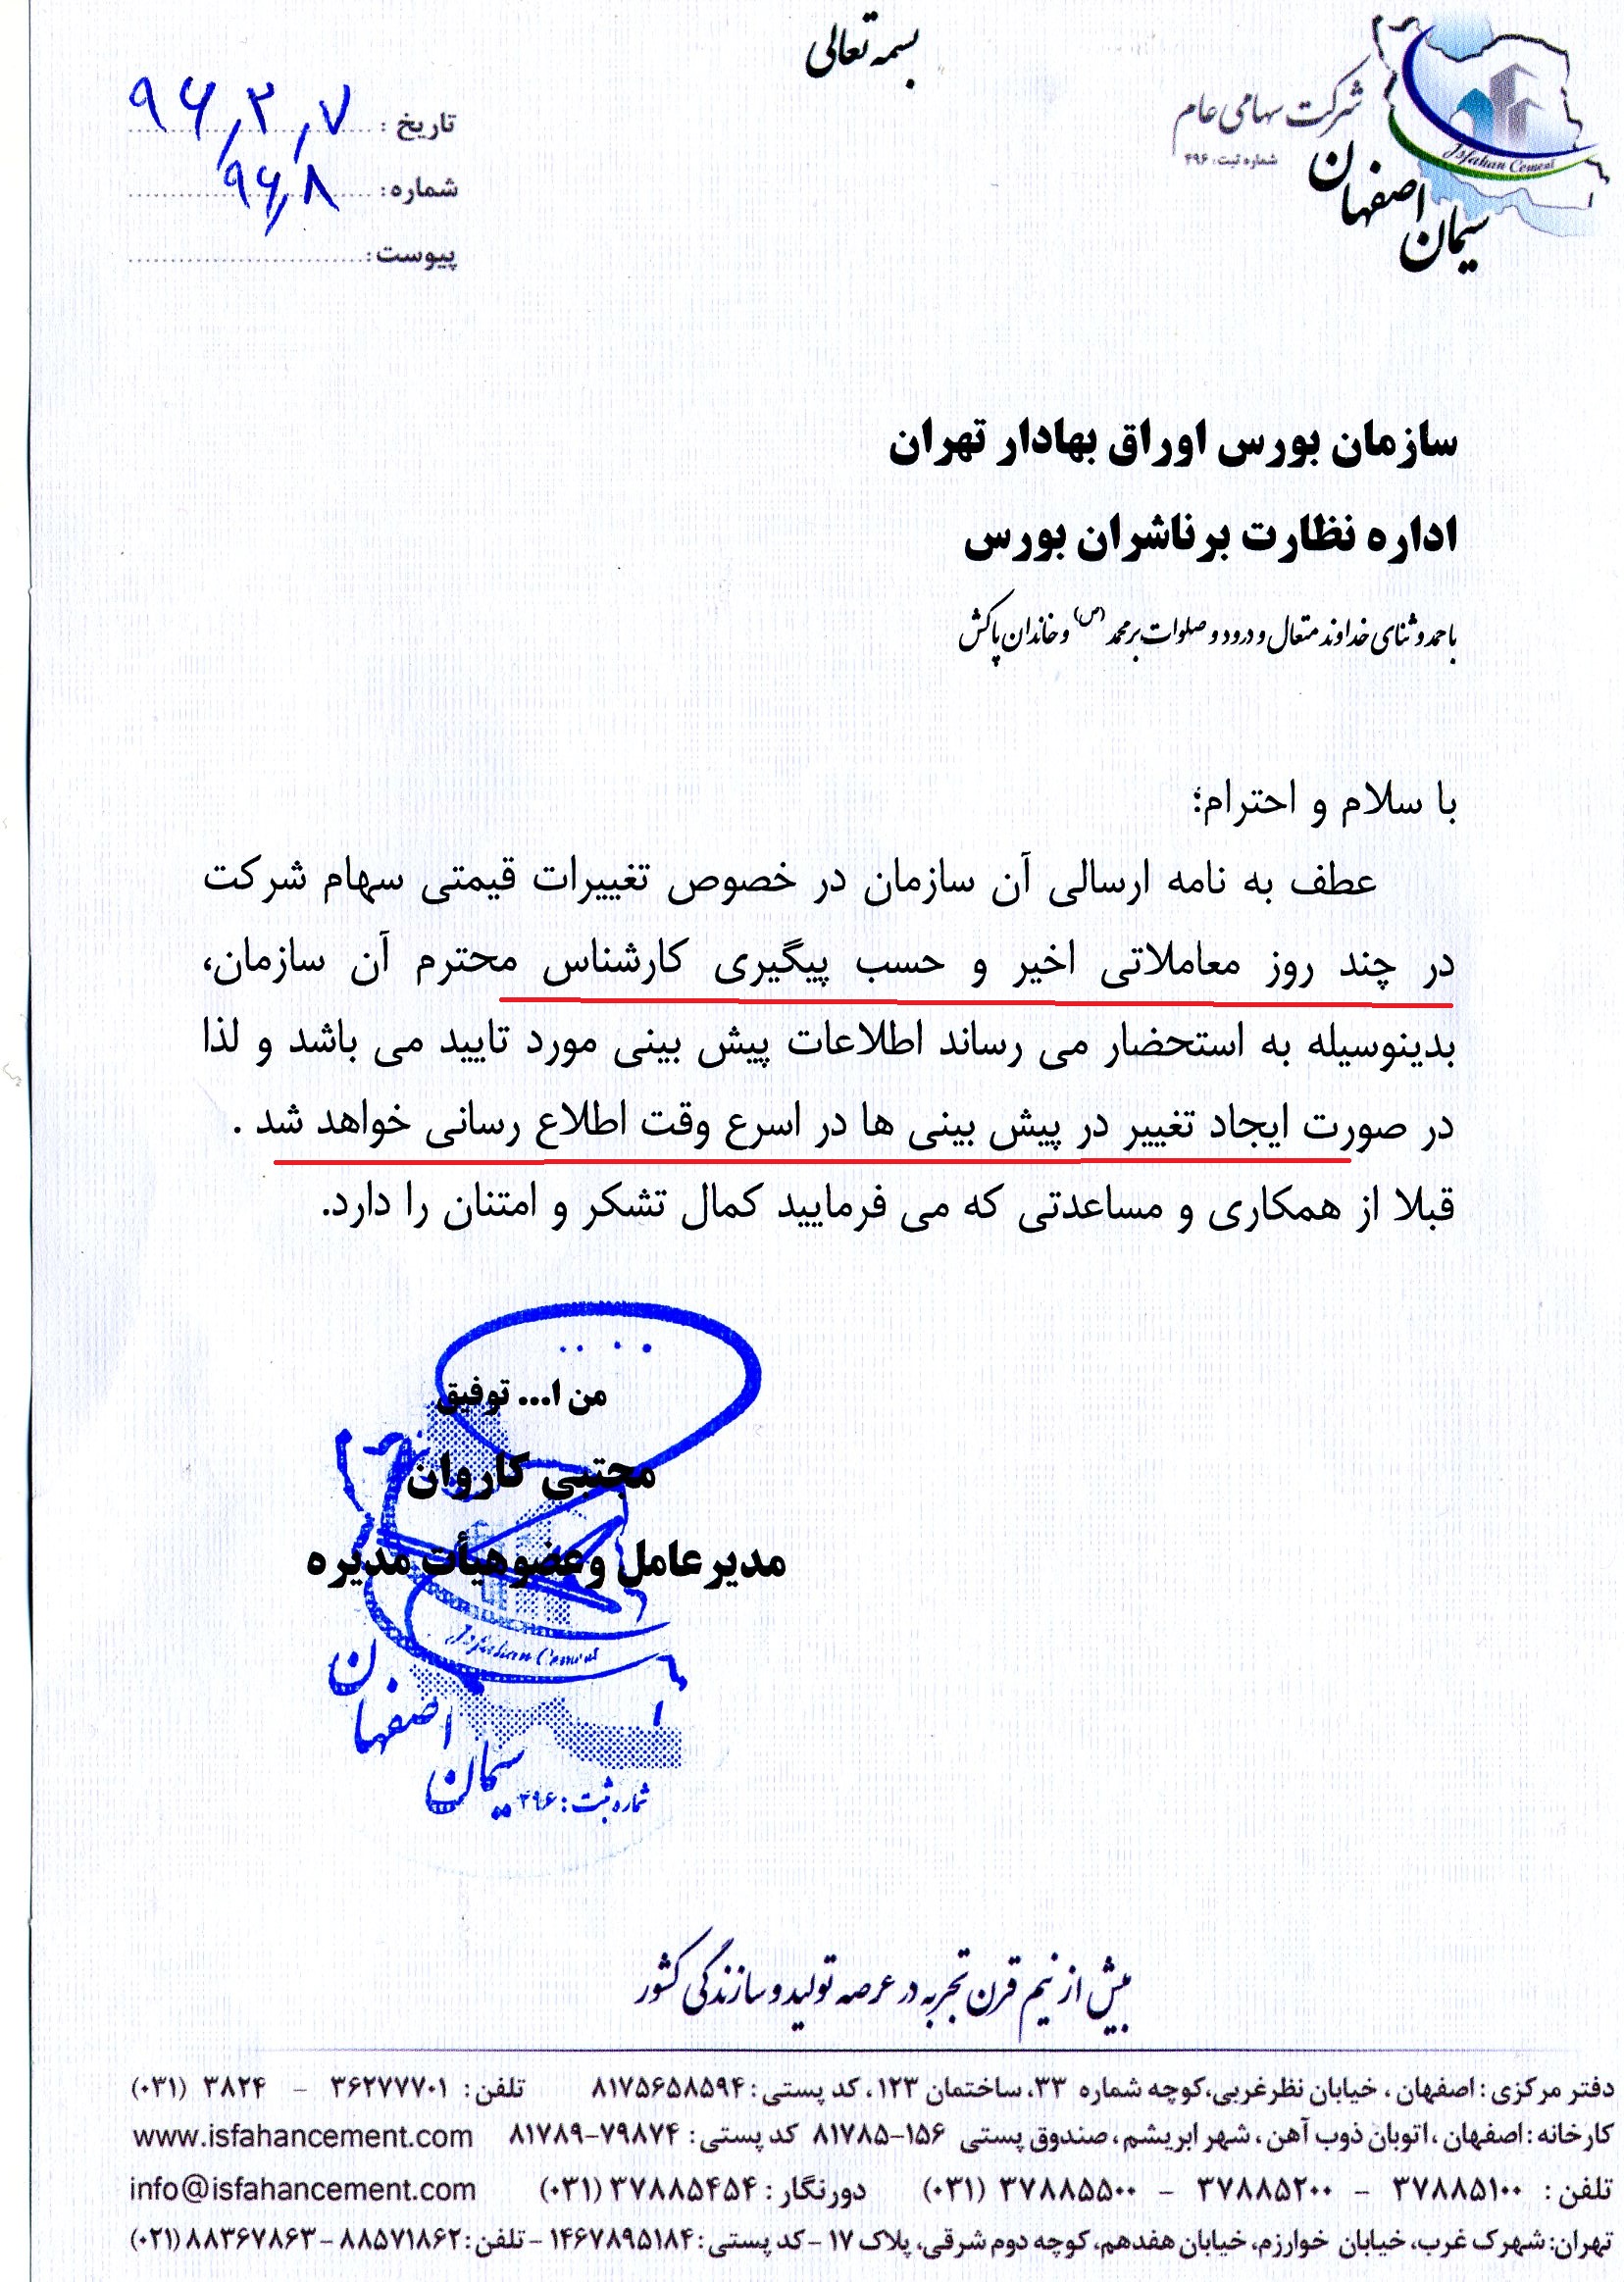 بسمه تعالی
شرکت سهامی عام
شماره ثبت: ۴۹۶
سیمان اصفهان
Isfahan Cement
تاریخ : ۹۶,۲,۷
شماره: ۹۶,۸
پیوست:
سازمان بورس اوراق بهادار تهران
اداره نظارت برناشران بورس
با حمد و ثنای خداوند متعال و درود و صلوات بر محمد (ص) و خاندان پاکش
با سلام و احترام؛
عطف به نامه ارسالی آن سازمان در خصوص تغییرات قیمتی سهام شرکت
در چند روز معاملاتی اخیر و حسب پیگیری کارشناس محترم آن سازمان،
بدینوسیله به استحضار می رساند اطلاعات پیش بینی مورد تایید می باشد و لذا
در صورت ایجاد تغییر در پیش بینی ها در اسرع وقت اطلاع رسانی خواهد شد .
قبلا از همکاری و مساعدتی که می فرمایید کمال تشکر و امتنان را دارد.
من ا... توفیق
مجتبی کاروان
مدیرعامل وعضوهیأت مدیره
Isfahan Cement
سیمان اصفهان
شماره ثبت : ۴۹۶
بیش از نیم قرن تجربه در عرصه تولید و سازندگی کشور
دفتر مرکزی : اصفهان ، خیابان نظرغربی،کوچه شماره ۳۳، ساختمان ۱۲۳، کد پستی : ۸۱۷۵۶۵۸۵۹۴ تلفن : ۳۶۲۷۷۷۰۱ - ۳۸۲۴ (۰۳۱)
کارخانه : اصفهان ،اتوبان ذوب آهن ، شهر ابریشم ، صندوق پستی ۱۵۶-۸۱۷۸۵ کد پستی : ۷۹۸۷۴-۸۱۷۸۹ www.isfahancement.com
تلفن : ۳۷۸۸۵۱۰۰ - ۳۷۸۸۵۲۰۰ - ۳۷۸۸۵۵۰۰ (۰۳۱) دورنگار : ۳۷۸۸۵۴۵۴ (۰۳۱) info@isfahancement.com
تهران: شهرک غرب، خیابان خوارزم، خیابان هفدهم، کوچه دوم شرقی، پلاک ۱۷ - کد پستی : ۱۴۶۷۸۹۵۱۸۴ - تلفن : ۸۸۵۷۱۸۶۲ - ۸۸۳۶۷۸۶۳ (۰۲۱)